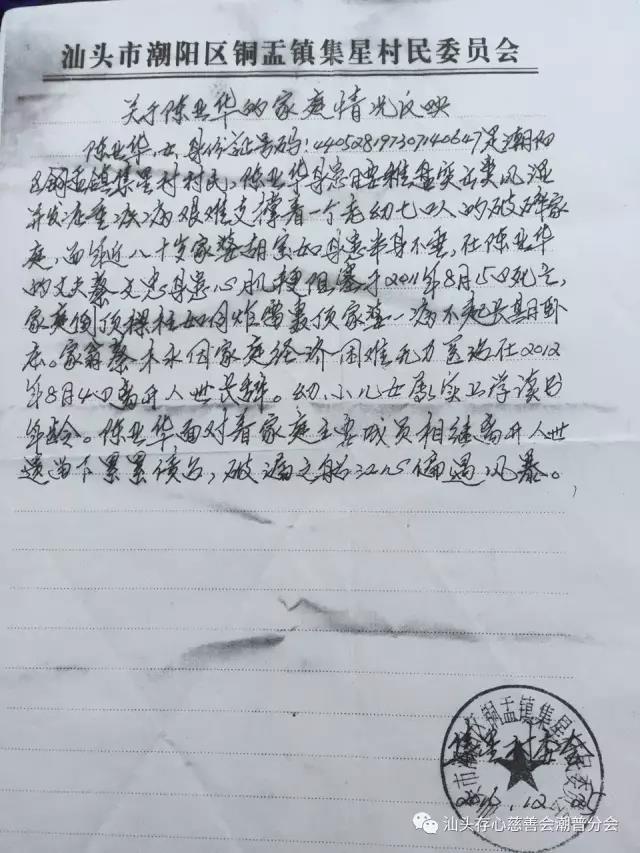 汕头市潮阳区铜盂镇集星村民委员会
关于陈业华的家庭情况反映
陈业华，女，身份证号码：440528197307140647是潮阳
区铜盂镇集星村村民，陈业华身患腰椎盘突出类风湿
并发症重疾病艰难支撑着一个老幼七口人的破碎家
庭，面年近八十岁家婆胡宝如身患半身不垂，在陈业华
的丈夫蔡文忠身患心肌梗阻塞于2011年8月15日死亡，
家庭倒顶梁柱如同炸雷轰顶家婆一病不起长期卧
床。家翁蔡木永因家庭经济困难无力医治在2012
年8月4日离开人世长辞。幼小儿女 上学读书
年龄。陈业华面对着家庭主要成员相继离开人世
遗留下累累债台，破漏之船江心偏遇风暴。
集星村委会
12
汕头存心慈善会潮普分会